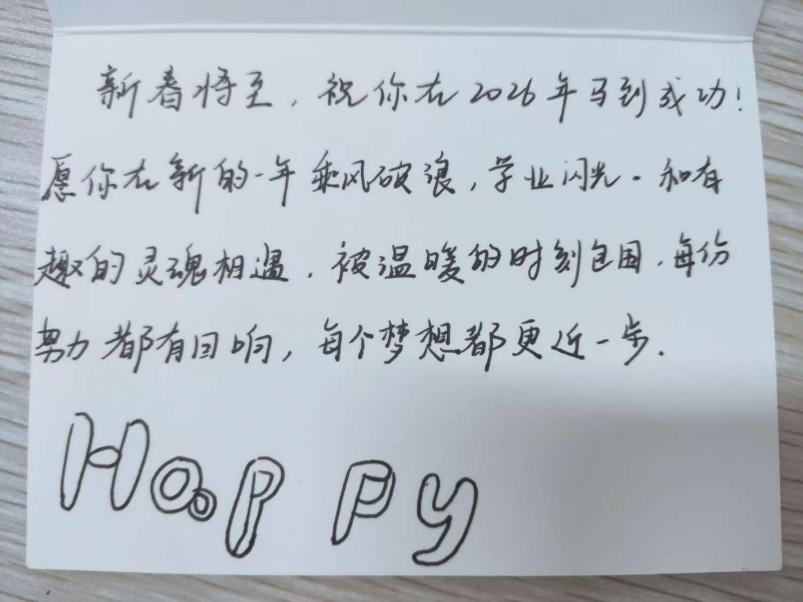 新春将至，祝你在2026年马到成功！
愿你在新的一年乘风破浪，学业闪光。和有
趣的灵魂相遇，被温暖的时刻包围，每份
努力都有回响，每个梦想都更近一步.
Happy